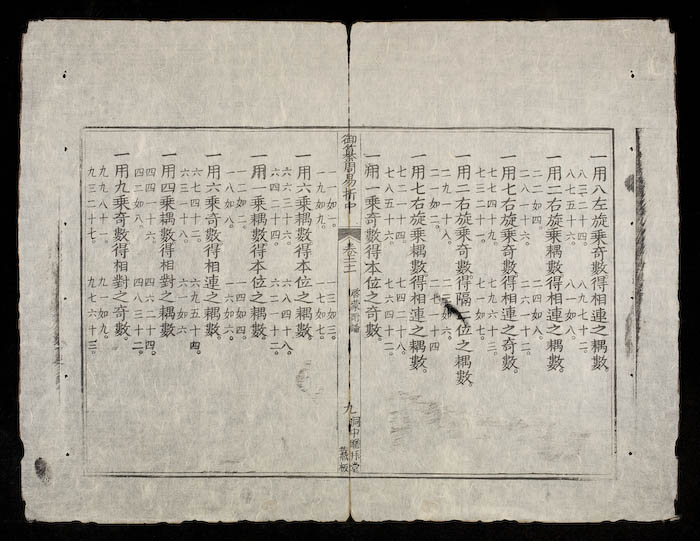 一用八左旋乘奇數得相連之耦數。
八三二十四。 八九七十二。
八七五十六。 八一如八。
一用二右旋乘耦數得相連之耦數。
二二如四。 二四如八。
二八一十六。 二六一十二。
一用七右旋乘奇數得相連之奇數。
七七四十九。 七九六十三。
七三二十一。 七一如七。
一用二右旋乘奇數得隔二位之耦數。
二九一十八。 二三如六。
二一如二。 二七一十四
一用七右旋乘耦數得相連之耦數。
七二一十四。 七四二十八。
七八五十六。 七六四十二。
一用一乘奇數得本位之奇數。
一一如一。 一三如三。
一九如九。 一七如七。
御纂周易折中
卷二
啓蒙附論
九
洞中
舊板
一用六乘耦數得本位之耦數。
六六三十六。 六八四十八。
六四二十四。 六二一十二。
一用一乘耦數得本位之耦數。
一二如二。 一四如四。
一八如八。 一六如六。
一用六乘奇數得相連之耦數。
六七四十二。 六九五十四。
六三一十八。 六一如六。
一用四乘耦數得相對之耦數。
四四一十六。 四六二十四。
四二如八。 四八三十二。
一用九乘奇數得相對之奇數。
九九八十一。 九一如九。
九三二十七。 九七六十三。